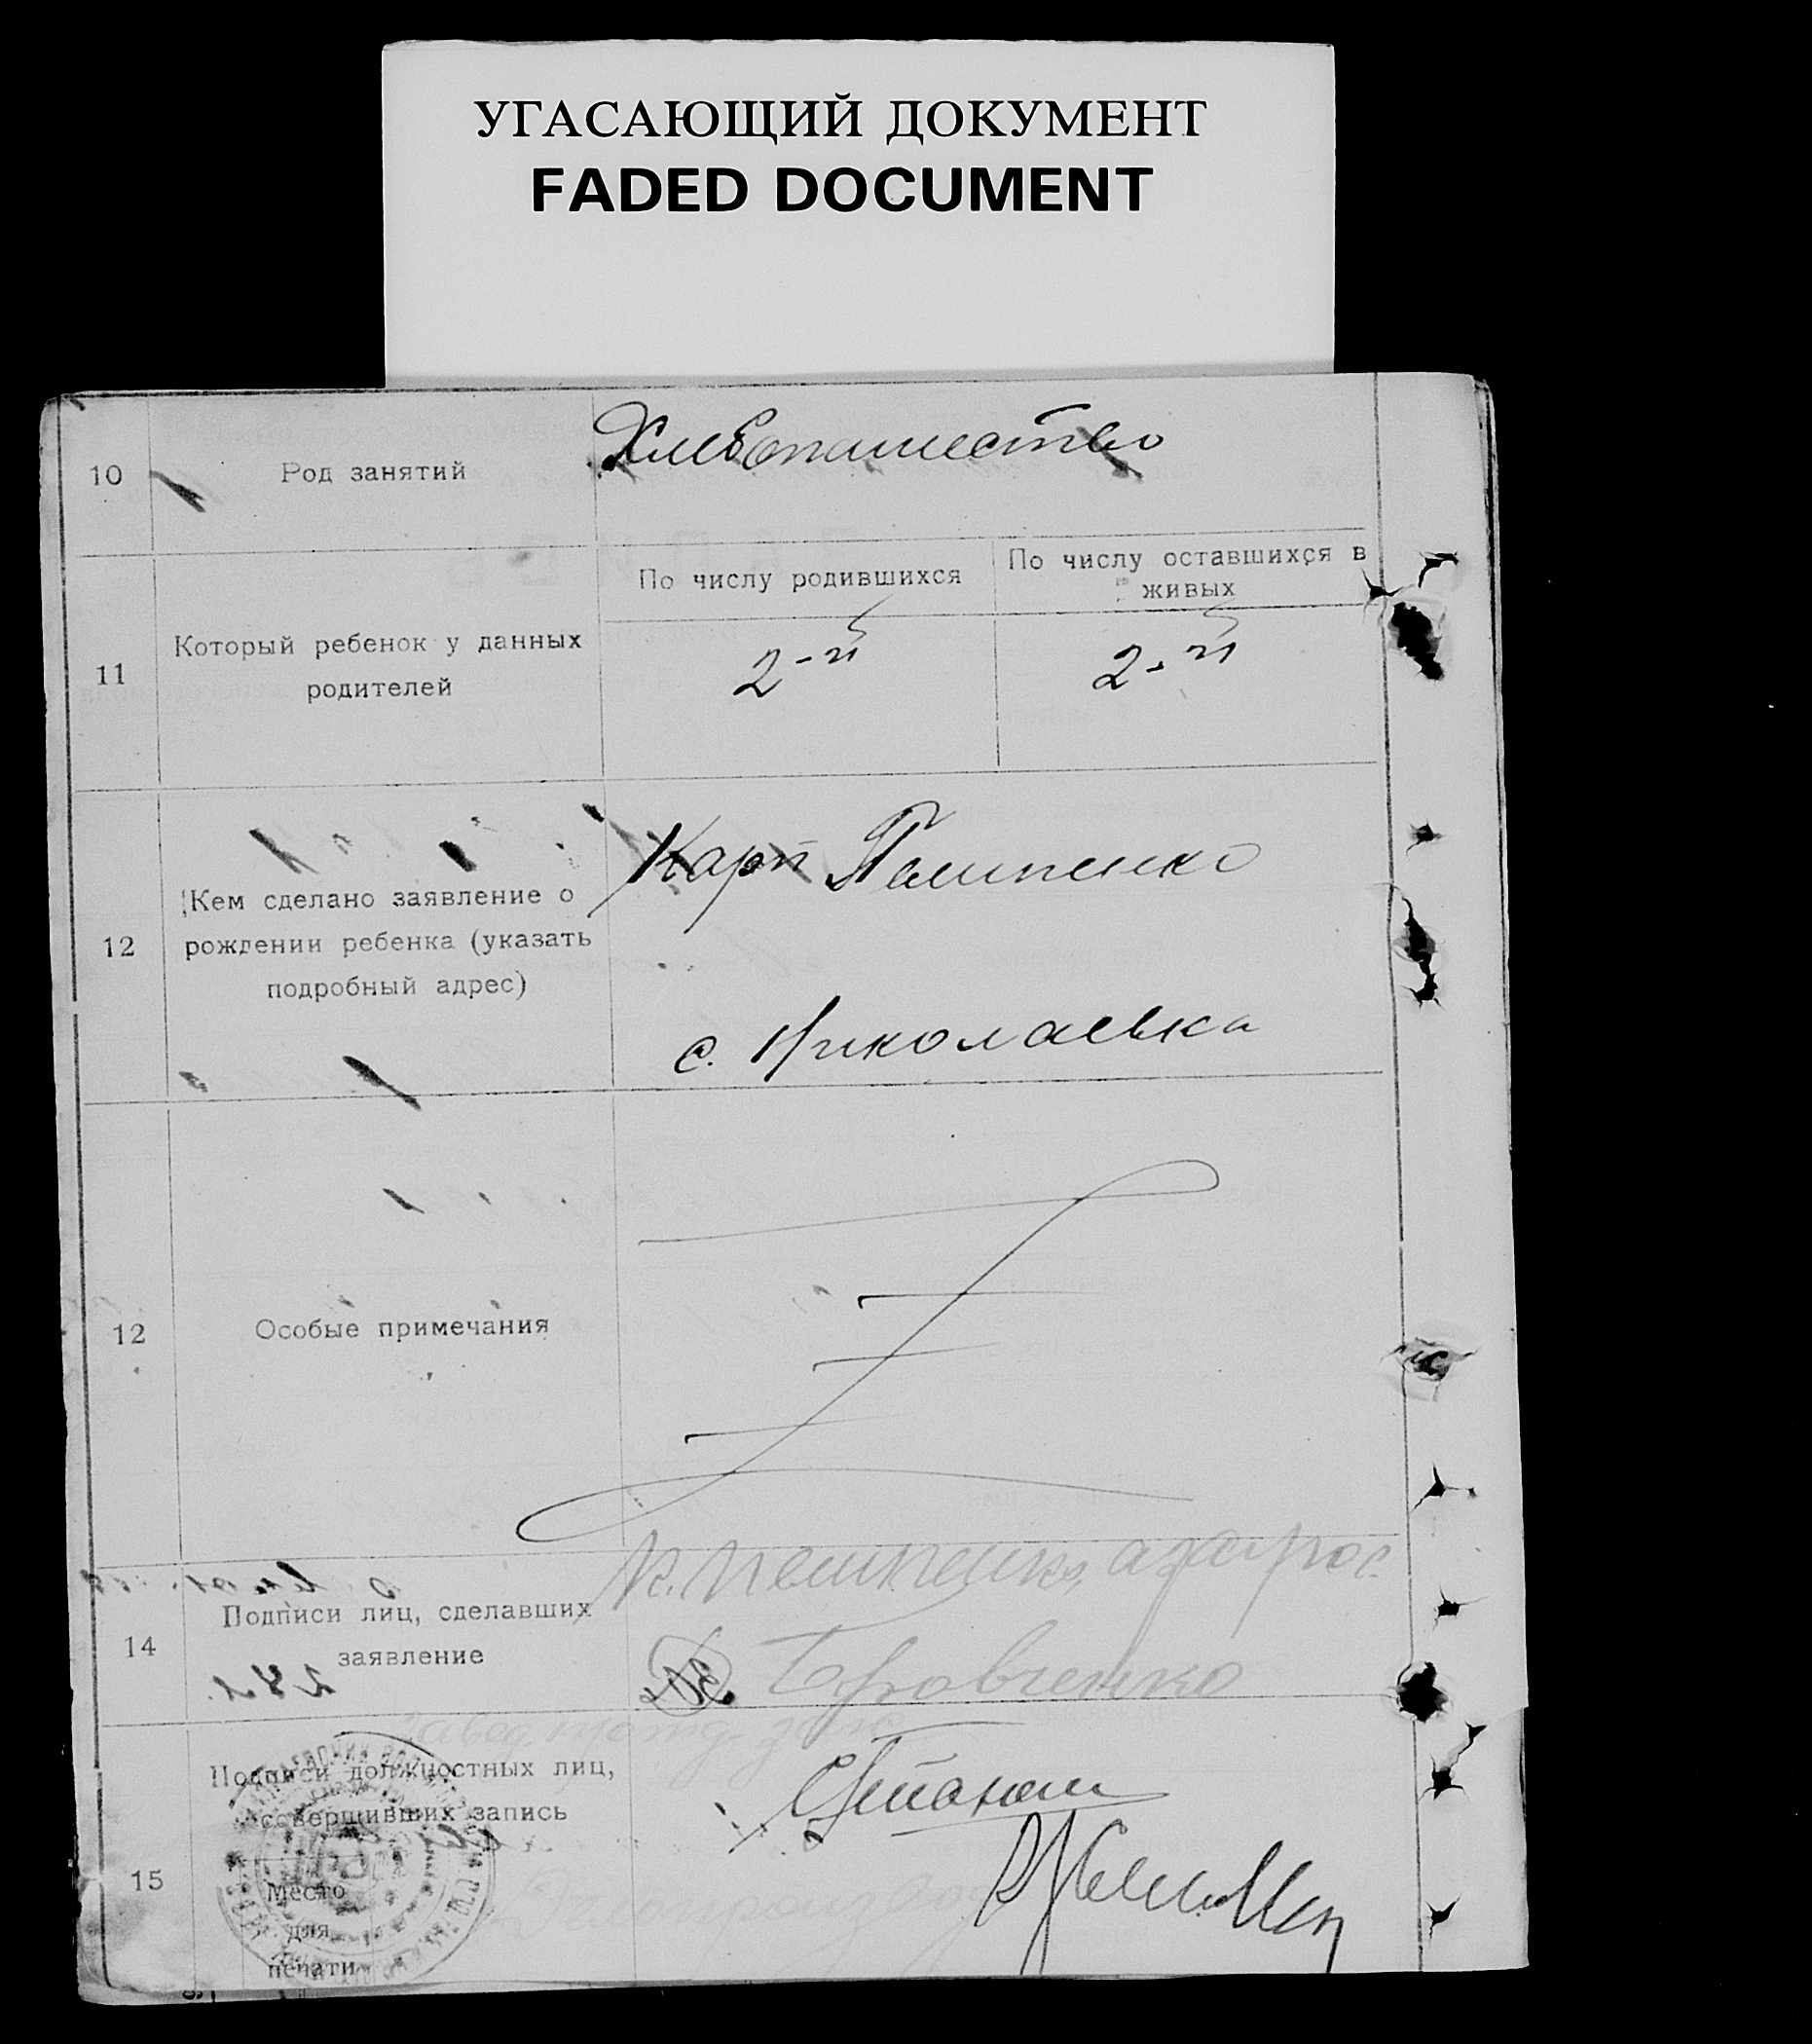 УГАСАЮЩИЙ ДОКУМЕНТ
FADED DOCUMENT
10
Род занятий
Хлебопашество
11
Который ребенок у данных
родителей
По числу родившихся
2-й
По числу оставшихся в
живых
2-й
12
Кем сделано заявление о
рождении ребенка (указать
подробный адрес)
Карп
с. Николаевка
12
Особые примечания
14
Подписи лиц, сделавших
заявление
15
Подписи должностных лиц,
совершивших запись
Место
для
печати